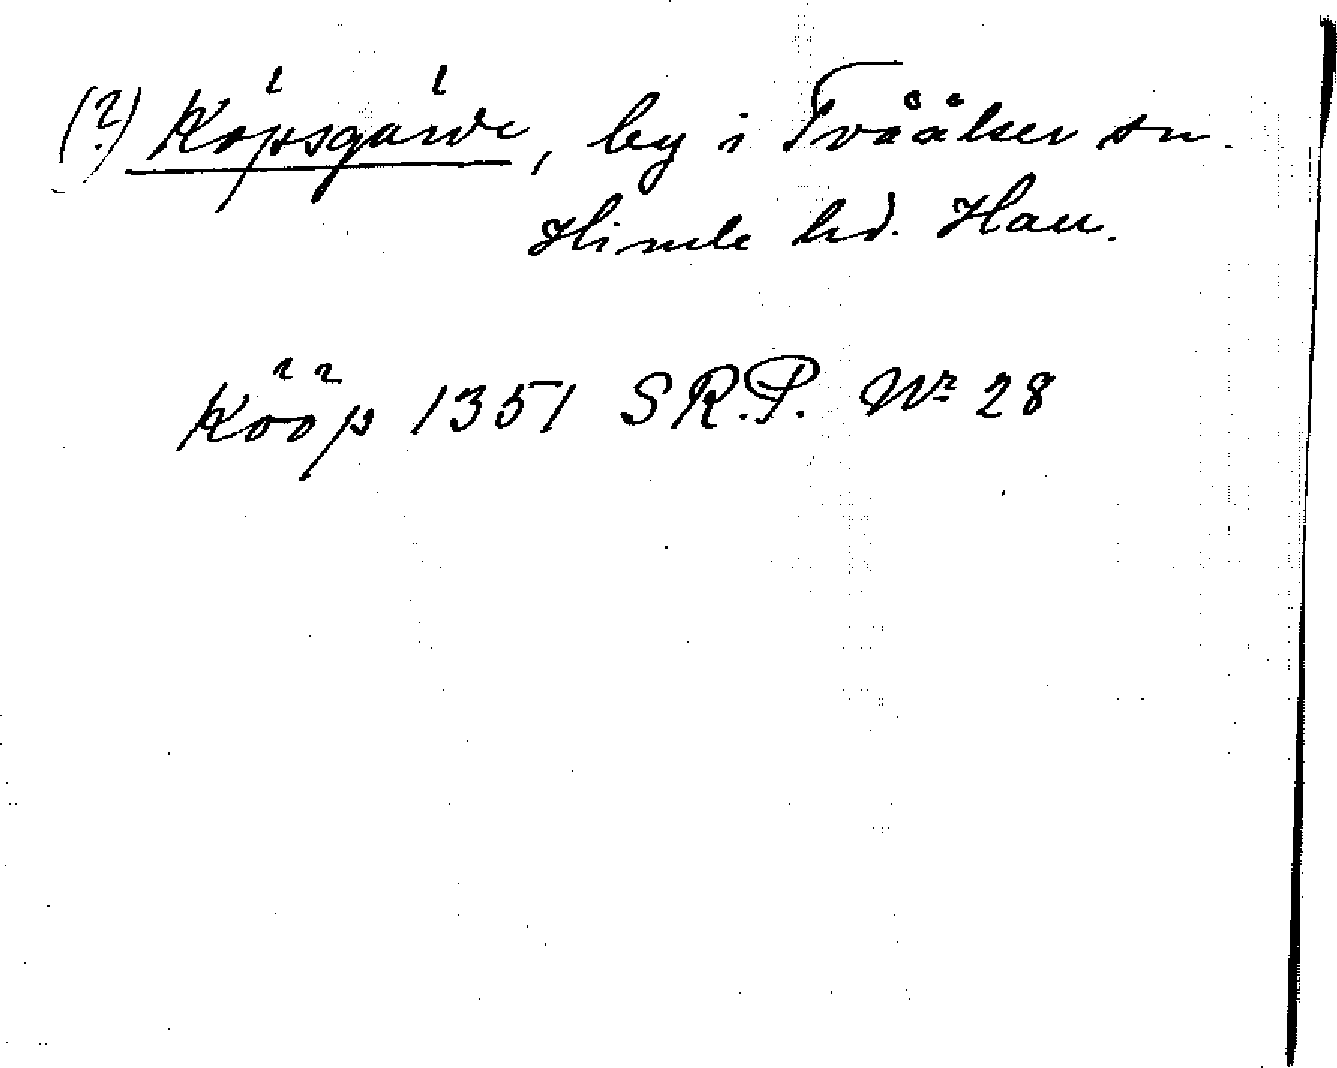 (?) Köpsgärde, by i Tvååker sn.
Himle hd. Hall.
Kööp 1351 S R.P. Nr 28